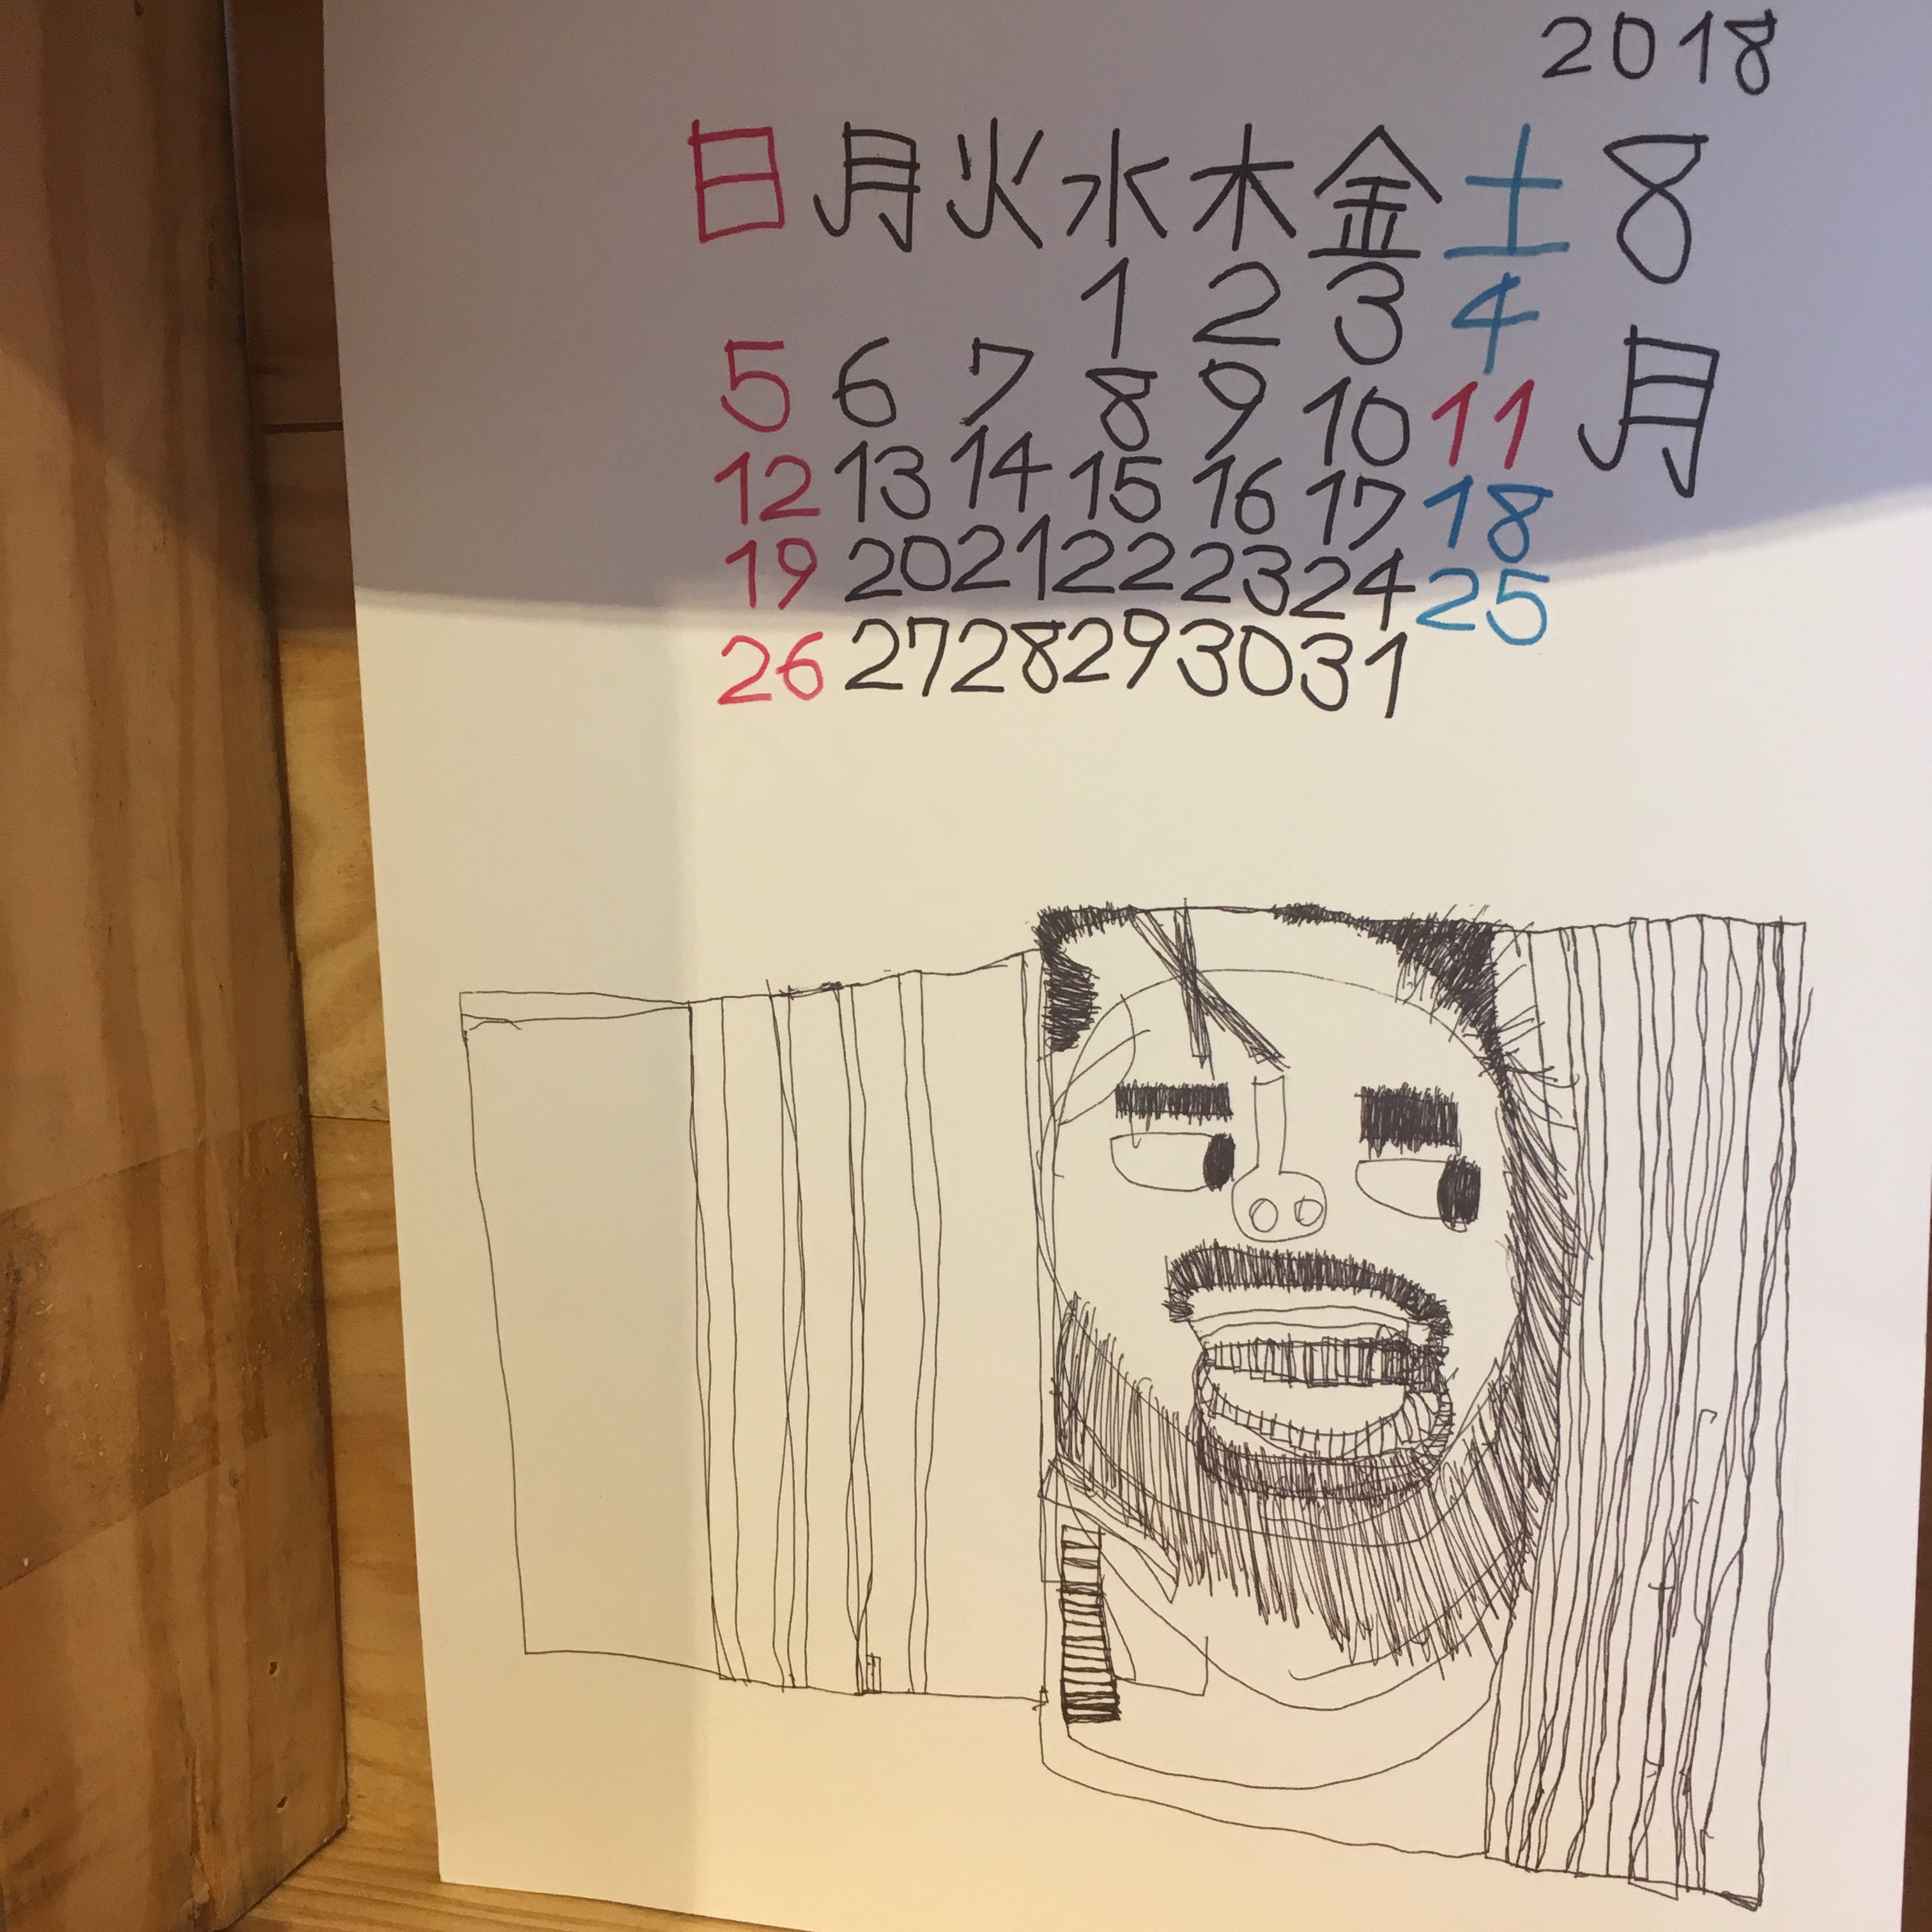 2018
8月
日 月 火 水 木 金 土
1 2 3 4
5 6 7 8 9 10 11
12 13 14 15 16 17 18
19 20 21 22 23 24 25
26 27 28 29 30 31